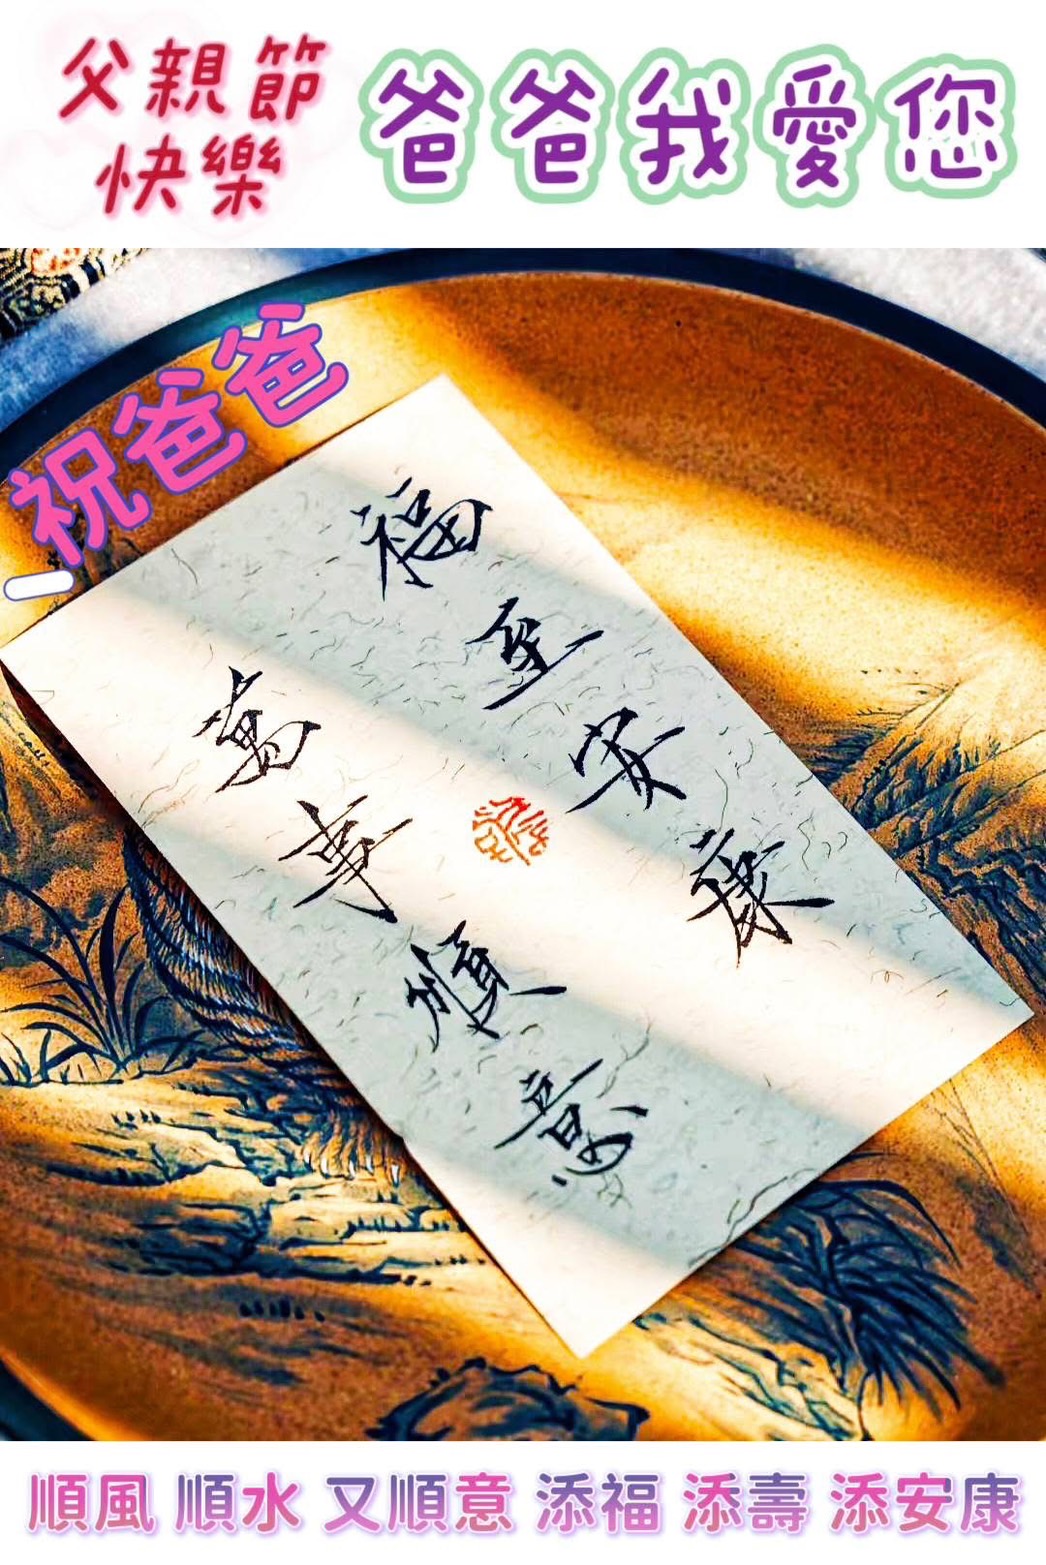 父親節
快樂
爸爸我愛您
祝爸爸
福至安康
萬事順意
順風 順水 又順意 添福 添壽 添安康